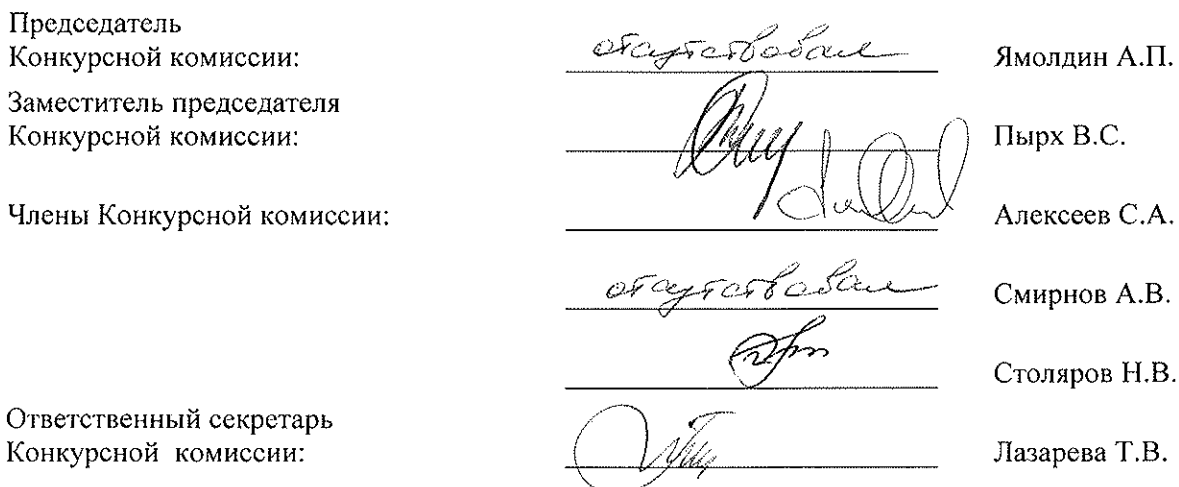 Председатель
Конкурсной комиссии: отсутствовал Ямолдин А.П.
Заместитель председателя
Конкурсной комиссии: Пырх В.С.
Члены Конкурсной комиссии: Алексеев С.А.
отсутствовал Смирнов А.В.
Столяров Н.В.
Ответственный секретарь
Конкурсной комиссии: Лазарева Т.В.